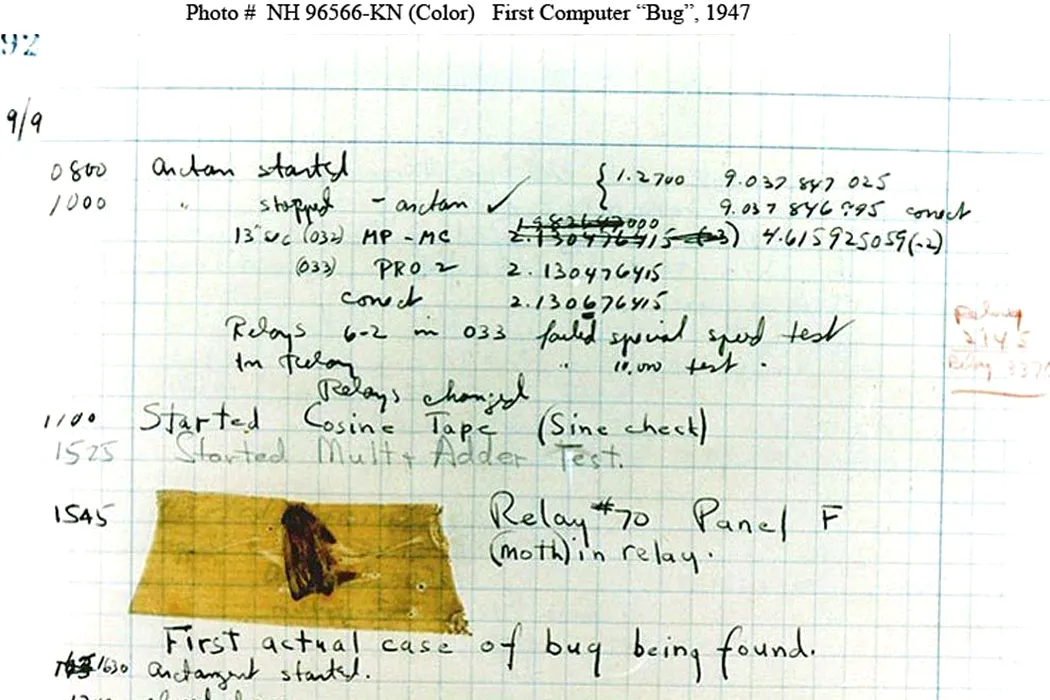 Photo # NH 96566-KN (Color) First Computer “Bug”, 1947
92
9/9
0800 arctan started { 1.2700 9.037 847 025
1000 " stopped - arctan ✓ 9.037 846 995 correct
13"sec (032) MP - MC 4.615925059(-2)
(033) PRO 2 2.130476415
correct 2.130676415
Relays 6-2 in 033 failed special speed test
In relay " 10,000 test .
Relays changed
Relay
Relay 3370
1100 Started Cosine Tape (Sine check)
1525 Started Mult + Adder Test.
1545 Relay #70 Panel F
(moth) in relay.
First actual case of bug being found.
1630 arctangent started.